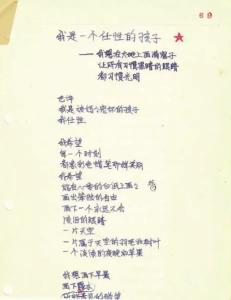 69
我是一个任性的孩子
——我想在大地上画满窗子
让所有习惯黑暗的眼睛
都习惯光明
也许
我是被妈妈宠坏的孩子
我任性
我希望
每一个时刻
都象彩色蜡笔那样美丽
我希望
能在心爱的白纸上画
画出笨拙的自由
画下一个永远不会
流泪的眼睛
一片天空
一片属于天空的羽毛和树叶
一个淡绿的夜晚和苹果
我想画下早晨
画下露水
所能看见的微笑